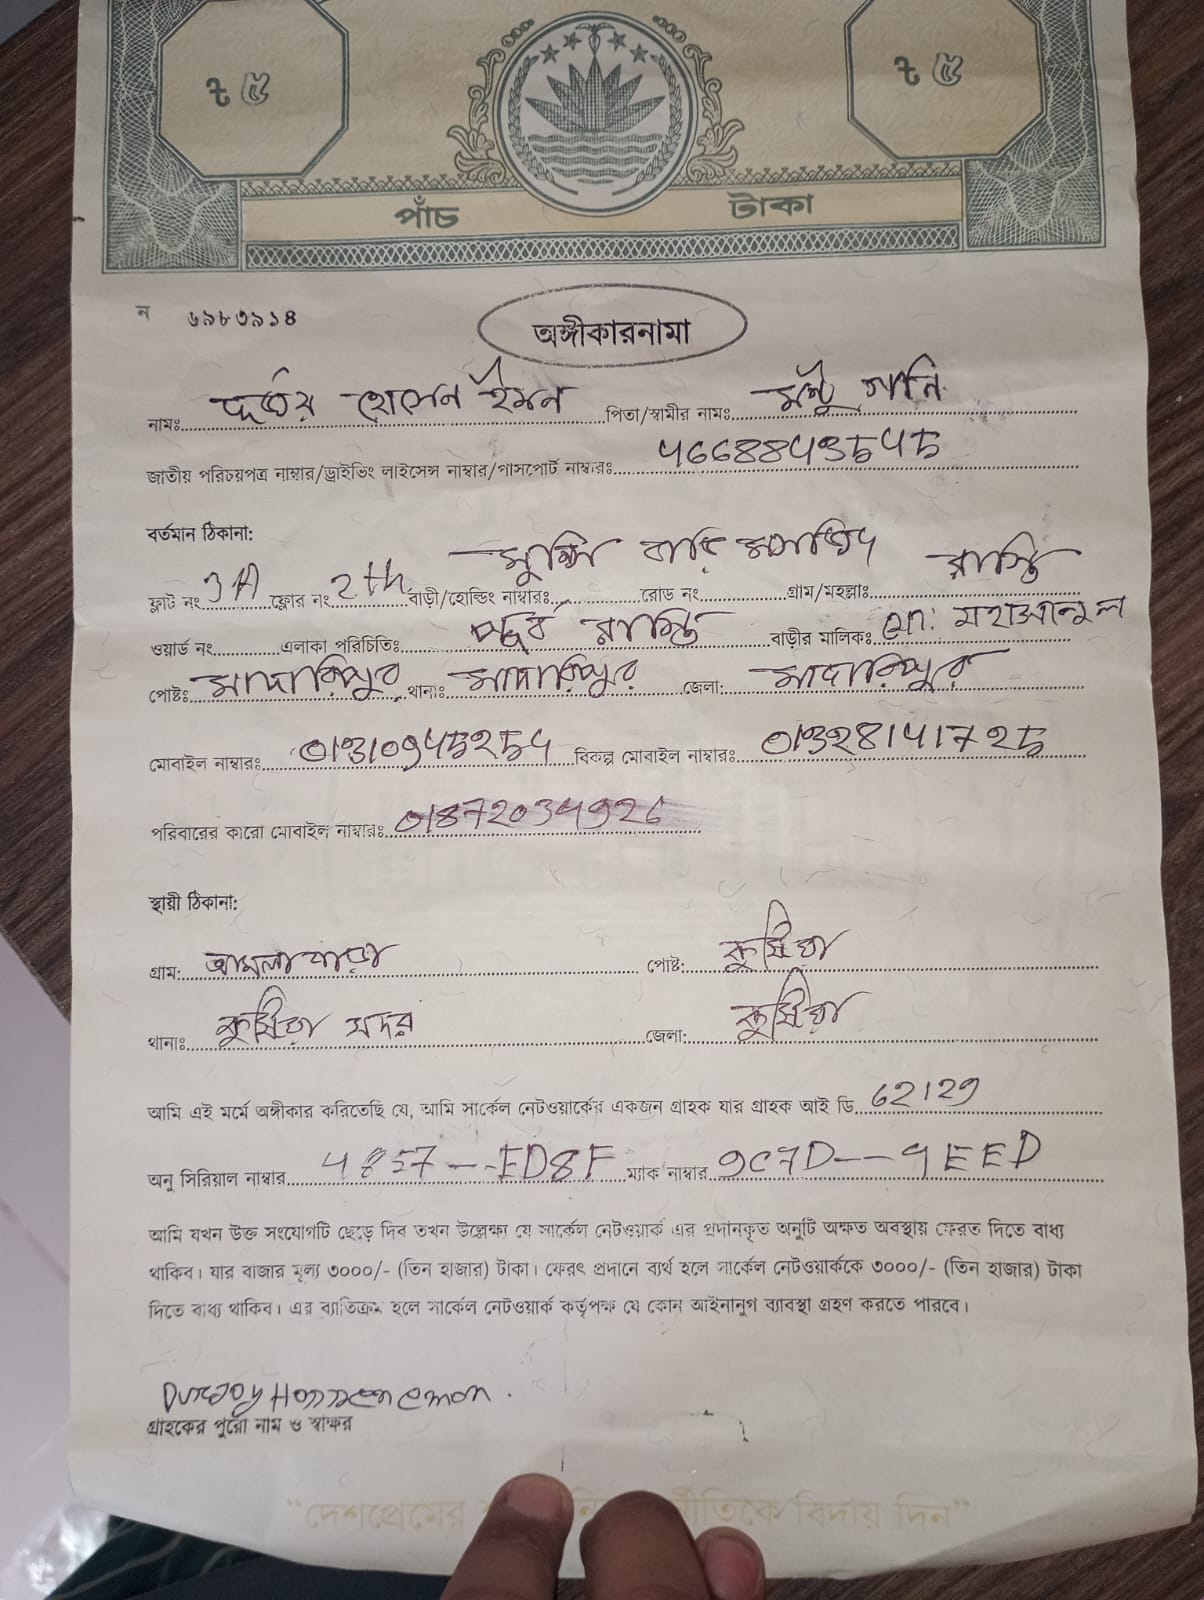 ৳ ৫ ৳ ৫
পাঁচ টাকা
ন ৬৯৮৩৯১৪
অঙ্গীকারনামা
নামঃ দূর্জয় হোসেন ইমন পিতা/স্বামীর নামঃ মন্টু গানি
জাতীয় পরিচয়পত্র নাম্বার/ড্রাইভিং লাইসেন্স নাম্বার/পাসপোর্ট নাম্বারঃ
বর্তমান ঠিকানা:
ফ্লাট নং 3A ফ্লোর নং 2th বাড়ী/হোল্ডিং নাম্বারঃ মুন্সি বাড়ি মসজিদ রোড নং গ্রাম/মহল্লাঃ রাস্তি
ওয়ার্ড নং এলাকা পরিচিতিঃ পূর্ব রাস্তি বাড়ীর মালিকঃ মো:
পোষ্টঃ মাদারিপুর থানাঃ মাদারিপুর জেলা: মাদারিপুর
মোবাইল নাম্বারঃ বিকল্প মোবাইল নাম্বারঃ
পরিবারের কারো মোবাইল নাম্বারঃ
স্থায়ী ঠিকানা:
গ্রাম: আমলাপাড়া পোষ্ট: কুষ্টিয়া
থানাঃ কুষ্টিয়া সদর জেলা: কুষ্টিয়া
আমি এই মর্মে অঙ্গীকার করিতেছি যে, আমি সার্কেল নেটওয়ার্কের একজন গ্রাহক যার গ্রাহক আই ডি 62129
অনু সিরিয়াল নাম্বার ম্যাক নাম্বার
আমি যখন উক্ত সংযোগটি ছেড়ে দিব তখন উল্লেক্ষা যে সার্কেল নেটওয়ার্ক এর প্রদানকৃত অনুটি অক্ষত অবস্থায় ফেরত দিতে বাধ্য
থাকিব। যার বাজার মূল্য ৩০০০/- (তিন হাজার) টাকা। ফেরৎ প্রদানে ব্যর্থ হলে সার্কেল নেটওয়ার্ককে ৩০০০/- (তিন হাজার) টাকা
দিতে বাধ্য থাকিব। এর ব্যতিক্রম হলে সার্কেল নেটওয়ার্ক কর্তৃপক্ষ যে কোন আইনানুগ ব্যাবস্থা গ্রহণ করতে পারবে।
Durjoy Hossen emon.
গ্রাহকের পুরো নাম ও স্বাক্ষর
“দেশপ্রেমের বিদায় দিন”